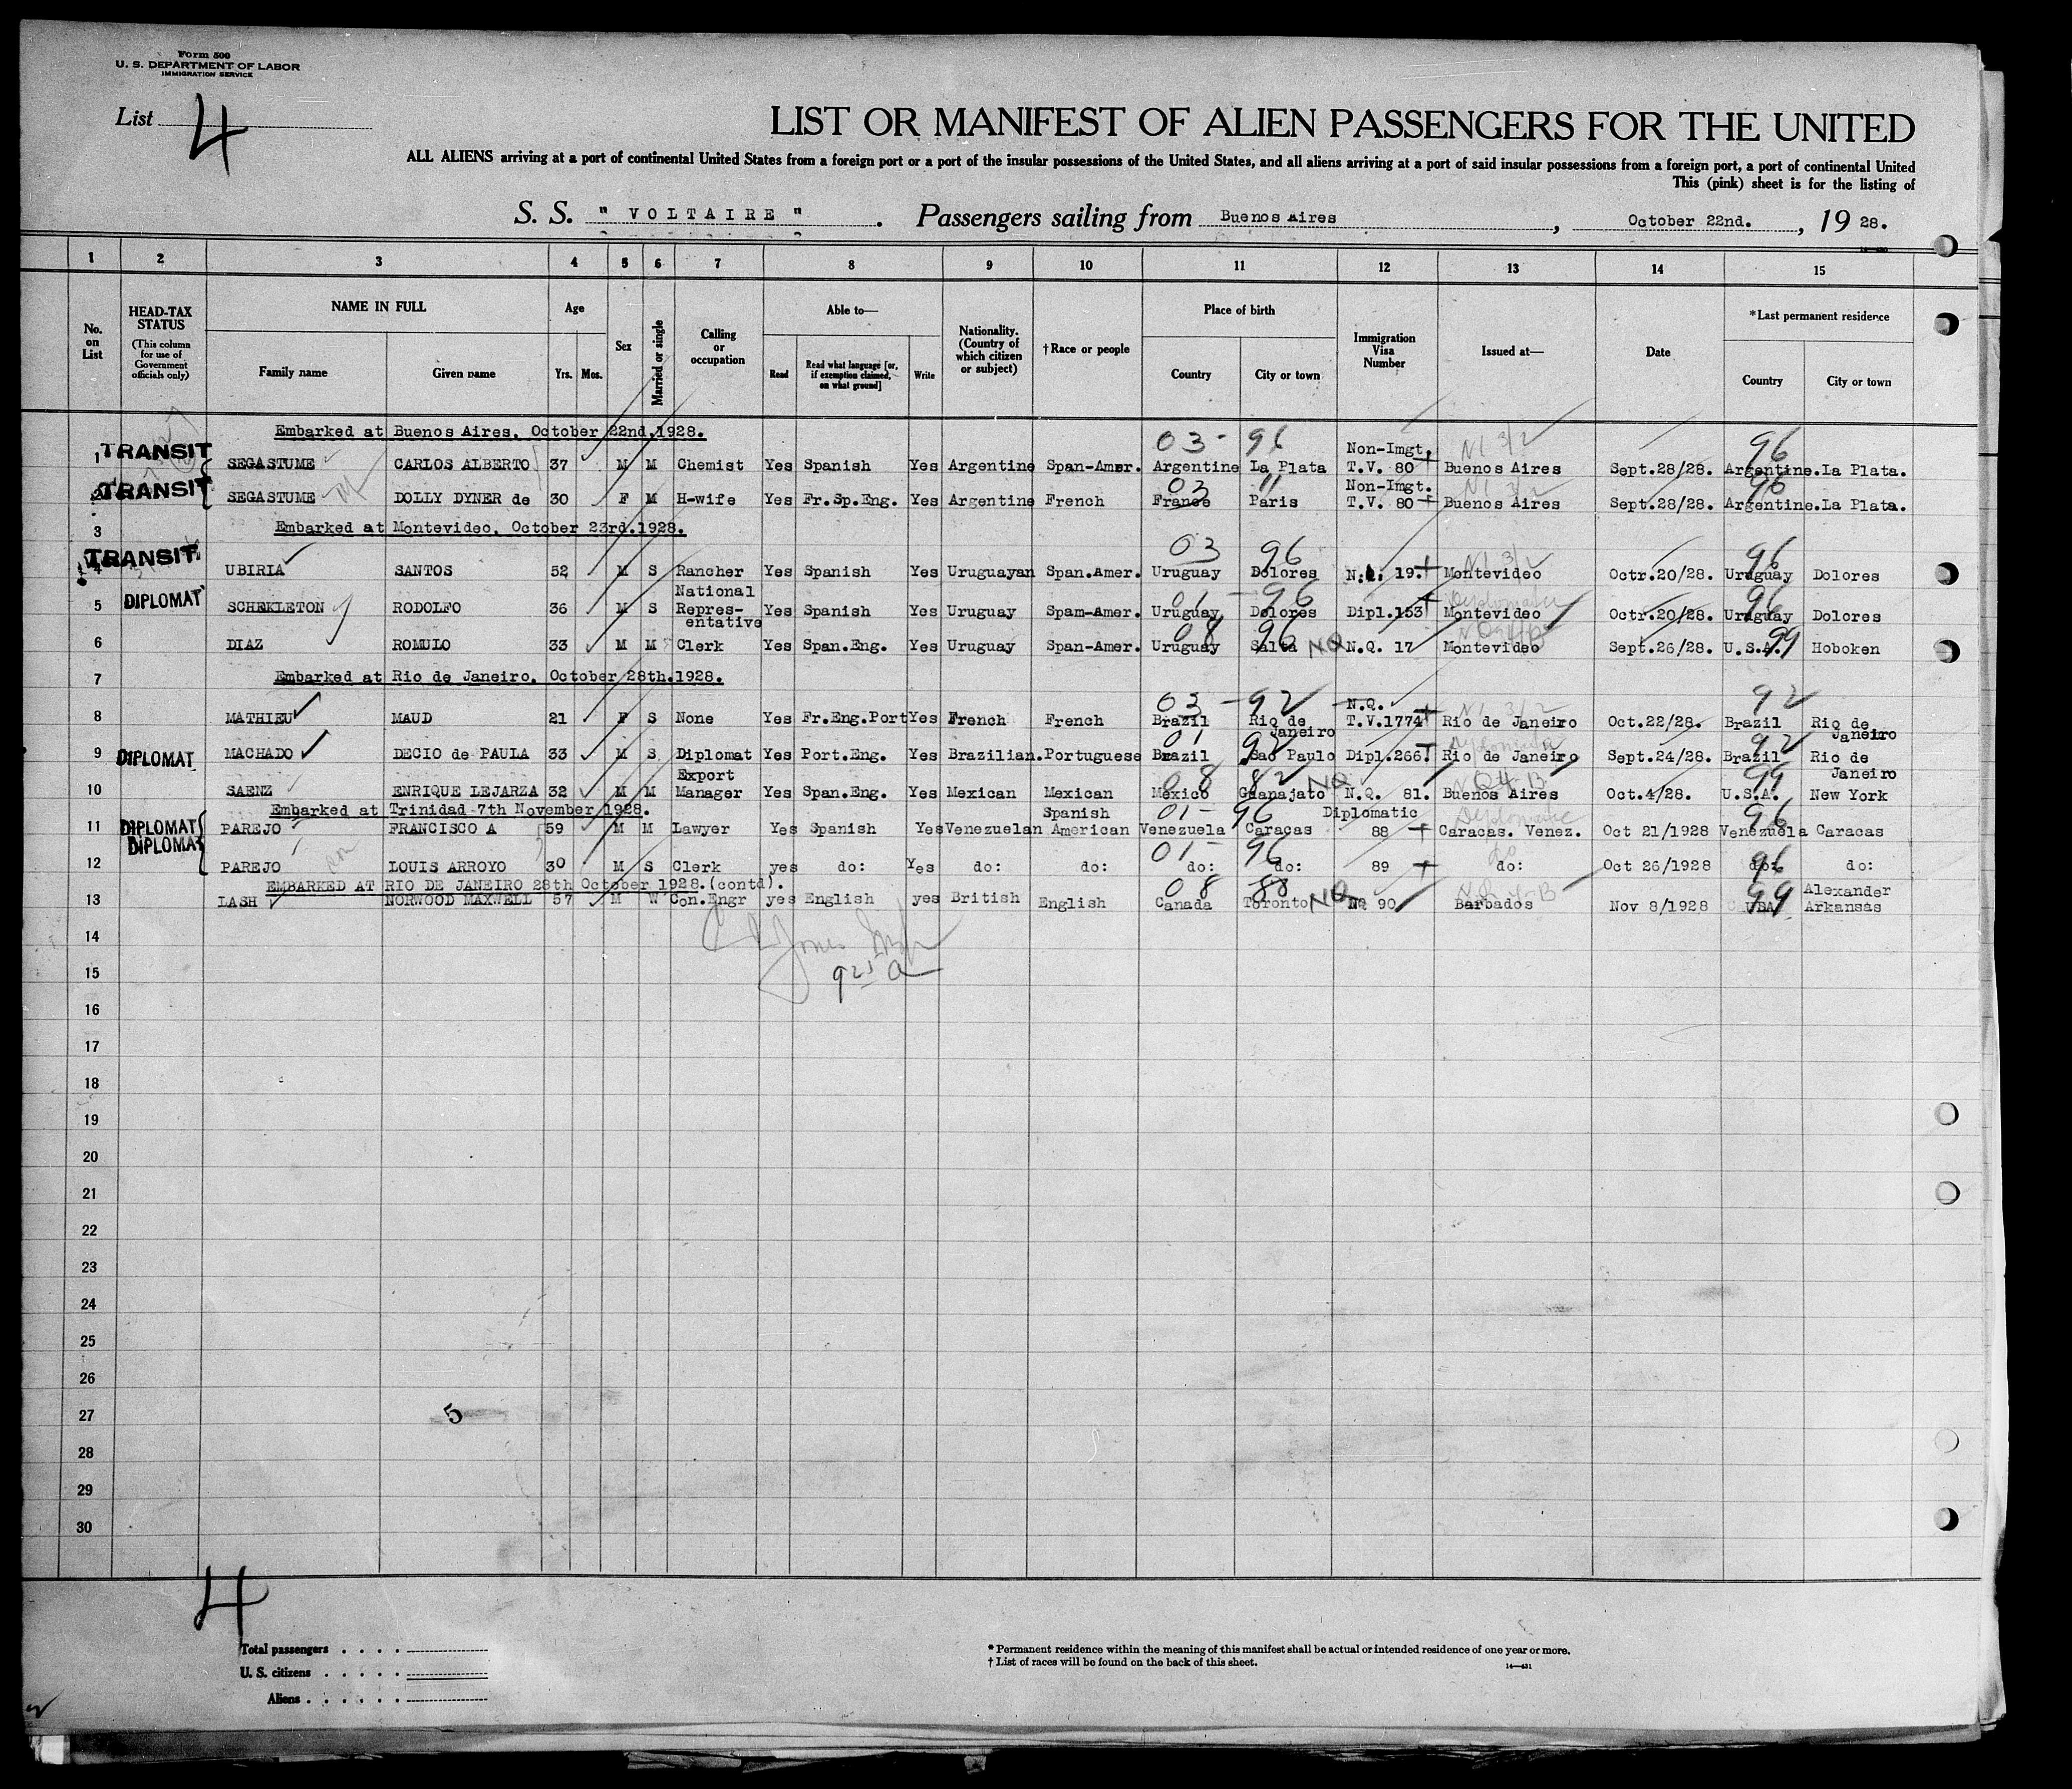 Form 500
U. S. DEPARTMENT OF LABOR
IMMIGRATION SERVICE
List 4
LIST OR MANIFEST OF ALIEN PASSENGERS FOR THE UNITED
ALL ALIENS arriving at a port of continental United States from a foreign port or a port of the insular possessions of the United States, and all aliens arriving at a port of said insular possessions from a foreign port, a port of continental United
This (pink) sheet is for the listing of
S. S. " VOLTAIRE ". Passengers sailing from Buenos Aires, October 22nd., 19 28.
1 2 3 4 5 6 7 8 9 10 11 12 13 14 15
No. on List
HEAD-TAX STATUS (This column for use of Government officials only)
NAME IN FULL
Family name
Given name
Age
Yrs. Mos.
Sex
Married or single
Calling or occupation
Able to—
Read
Read what language [or, if exemption claimed, on what ground]
Write
Nationality. (Country of which citizen or subject)
†Race or people
Place of birth
Country
City or town
Immigration Visa Number
Issued at—
Date
*Last permanent residence
Country
City or town
Embarked at Buenos Aires, October 22nd.1928.
03- 96 Non-Imgt. NI 3/2 96
1 TRANSIT SEGASTUME CARLOS ALBERTO 37 M M Chemist Yes Spanish Yes Argentine Span-Amer. Argentine La Plata T.V. 80 Buenos Aires Sept.28/28. Argentine.La Plata.
03 11 Non-Imgt. NI 3/2 96
2 TRANSIT SEGASTUME DOLLY DYNER de 30 F M H-wife Yes Fr.Sp.Eng. Yes Argentine French France Paris T.V. 80 Buenos Aires Sept.28/28. Argentine.La Plata.
3 Embarked at Montevideo, October 23rd.1928.
03 96 NI 3/2 96
4 TRANSIT UBIRIA SANTOS 52 M S Rancher Yes Spanish Yes Uruguayan Span.Amer. Uruguay Dolores 19. Montevideo Octr.20/28. Uruguay Dolores
01 - 96 Diplomatic 96
5 DIPLOMAT SCHEKLETON RODOLFO 36 M S National Repres-entative Yes Spanish Yes Uruguay Spam-Amer. Uruguay Dolores Dipl.153 Montevideo Octr.20/28. Uruguay Dolores
08 96 NQ 99
6 DIAZ ROMULO 33 M M Clerk Yes Span.Eng. Yes Uruguay Span-Amer. Uruguay Salta N.Q. 17 Montevideo Sept.26/28. U.S.A. Hoboken
7 Embarked at Rio de Janeiro, October 28th.1928.
03 - 92 N.Q. NI 3/2 92
8 MATHIEU MAUD 21 F S None Yes Fr.Eng.Port Yes French French Brazil Rio de Janeiro T.V.1774 Rio de Janeiro Oct.22/28. Brazil Rio de Janeiro
01 92 Diplomatic 92
9 DIPLOMAT MACHADO DECIO de PAULA 33 M S Diplomat Yes Port.Eng. Yes Brazilian. Portuguese Brazil Sao Paulo Dipl.266. Rio de Janeiro Sept.24/28. Brazil Rio de Janeiro
08 82 NQ NQ 4-B 99
10 SAENZ ENRIQUE LEJARZA 32 M M Export Manager Yes Span.Eng. Yes Mexican Mexican Mexico Guanajato N.Q. 81. Buenos Aires Oct.4/28. U.S.A. New York
Embarked at Trinidad 7th November 1928.
01- 96 Diplomatic Diplomatic 96
11 DIPLOMAT PAREJO FRANCISCO A 59 M M Lawyer Yes Spanish Yes Venezuelan Spanish American Venezuela Caracas 88 Caracas. Venez. Oct 21/1928 Venezuela Caracas
01- 96 do 96
12 DIPLOMAT PAREJO LOUIS ARROYO 30 M S Clerk yes do: Yes do: do: do: do: 89 do: Oct 26/1928 do: do:
EMBARKED AT RIO DE JANEIRO 28th October 1928.(contd).
08 88 NQ 99
13 LASH NORWOOD MAXWELL 57 M W Con.Engr yes English yes British English Canada Toronto NQ 90 Barbados Nov 8/1928 USA Alexander Arkansas
14
15
16
17
18
19
20
21
22
23
24
25
26
27 5
28
29
30
4
Total passengers
U. S. citizens
Aliens
* Permanent residence within the meaning of this manifest shall be actual or intended residence of one year or more.
† List of races will be found on the back of this sheet.
14—431